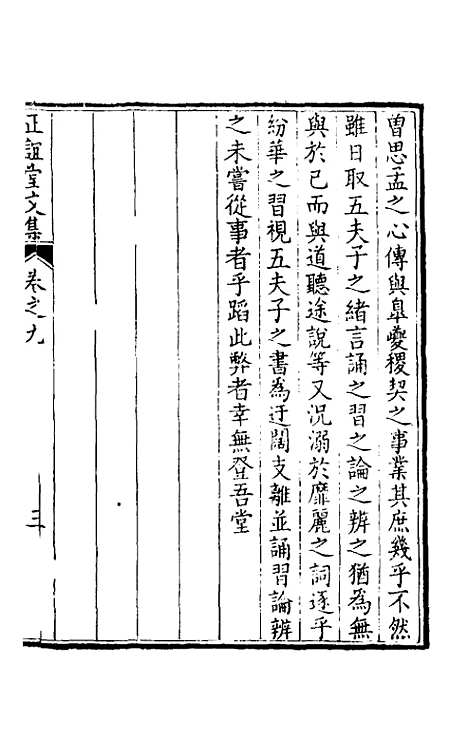 曽思孟之心傳與臯夔稷契之事業其庶幾乎不然
雖日取五夫子之緒言誦之習之論之辨之猶為無
與於已而與道聽途說等又況溺於靡麗之詞逐乎
紛華之習視五夫子之書為迂闊支離並誦習論辨
之未嘗從事者乎蹈此弊者幸無登吾堂
正誼堂文集
卷之九
三